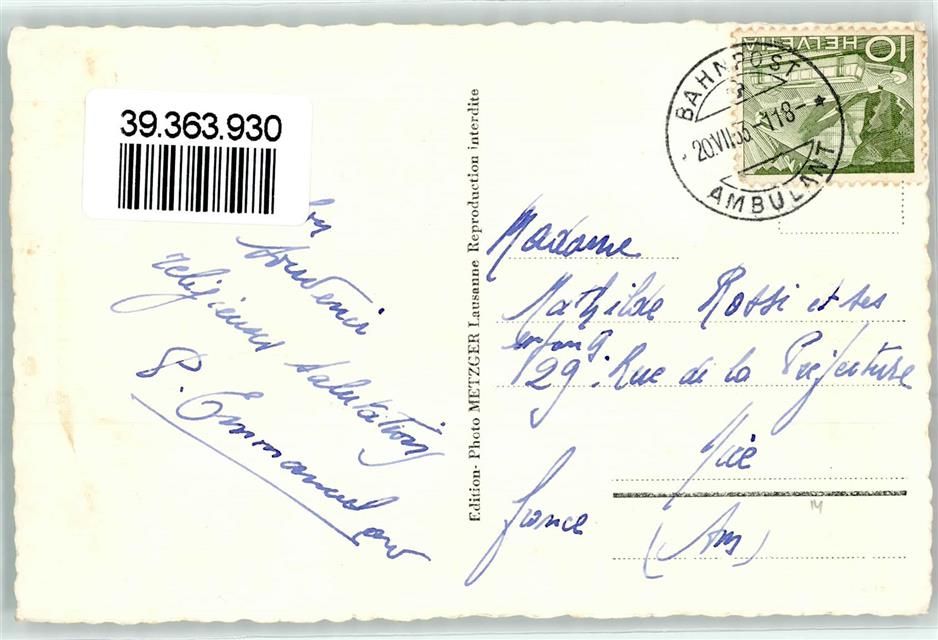 39.363.930
souvenir
religieuses salutations
P. Emmanuel
Edition - Photo METZGER Lausanne Reproduction interdite
HELVETIA 10
BAHNPOST
20.VII.53-118-
AMBULANT
Madame
Mathilde Rossi et ses
enfants
29. Rue de la Préfecture
Nice
France
(Am)